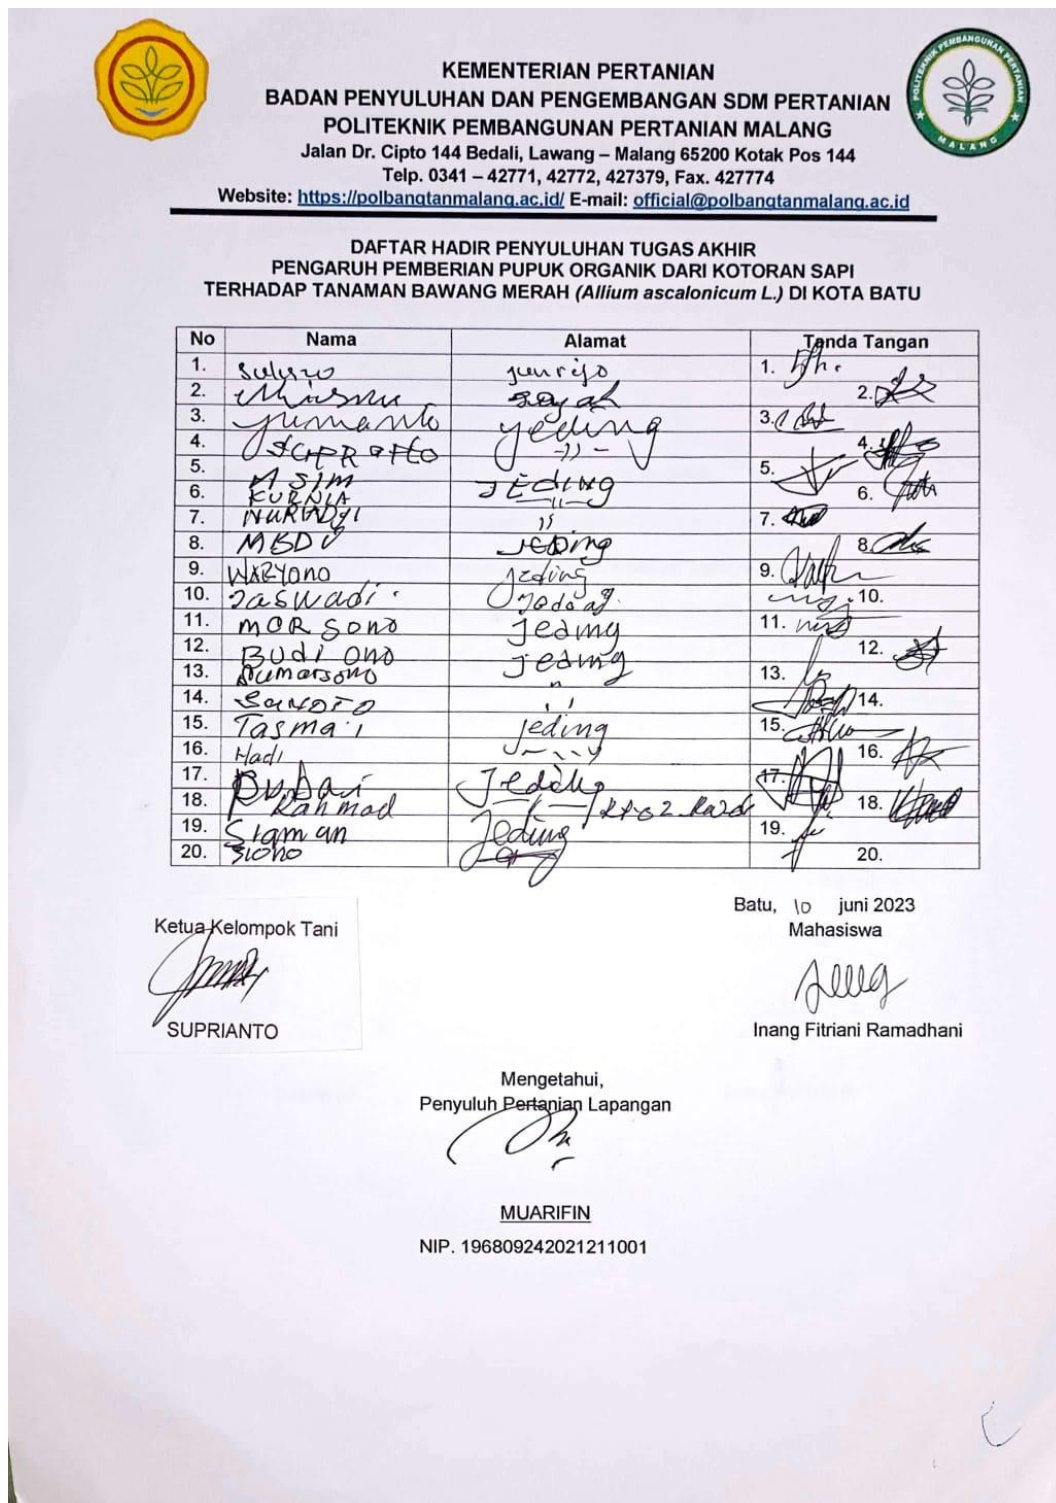 POLITEKNIK PEMBANGUNAN PERTANIAN
MALANG
KEMENTERIAN PERTANIAN
BADAN PENYULUHAN DAN PENGEMBANGAN SDM PERTANIAN
POLITEKNIK PEMBANGUNAN PERTANIAN MALANG
Jalan Dr. Cipto 144 Bedali, Lawang – Malang 65200 Kotak Pos 144
Telp. 0341 – 42771, 42772, 427379, Fax. 427774
Website: https://polbangtanmalang.ac.id/ E-mail: official@polbangtanmalang.ac.id
DAFTAR HADIR PENYULUHAN TUGAS AKHIR
PENGARUH PEMBERIAN PUPUK ORGANIK DARI KOTORAN SAPI
TERHADAP TANAMAN BAWANG MERAH (Allium ascalonicum L.) DI KOTA BATU
No Nama Alamat Tanda Tangan
1. junrejo 1.
2. 2.
3. yumanto yeding 3.
4. -"- 4.
5. ASIM JEding 5.
6. KURNIA -"- 6.
7. " 7.
8. JEDing 8.
9. WARYono jeding 9.
10. Jaswadi 10.
11. MORSono Jeding 11.
12. Budi ono Jeding 12.
13. Sumarsono " 13.
14. " 14.
15. Tasma'i jeding 15.
16. Hadi 16.
17. Jeding 17.
18. Rahmad 18.
19. Siaman Jeding 19.
20. Siono 20.
Batu, 10 juni 2023
Ketua Kelompok Tani Mahasiswa
SUPRIANTO Inang Fitriani Ramadhani
Mengetahui,
Penyuluh Pertanian Lapangan
MUARIFIN
NIP. 196809242021211001